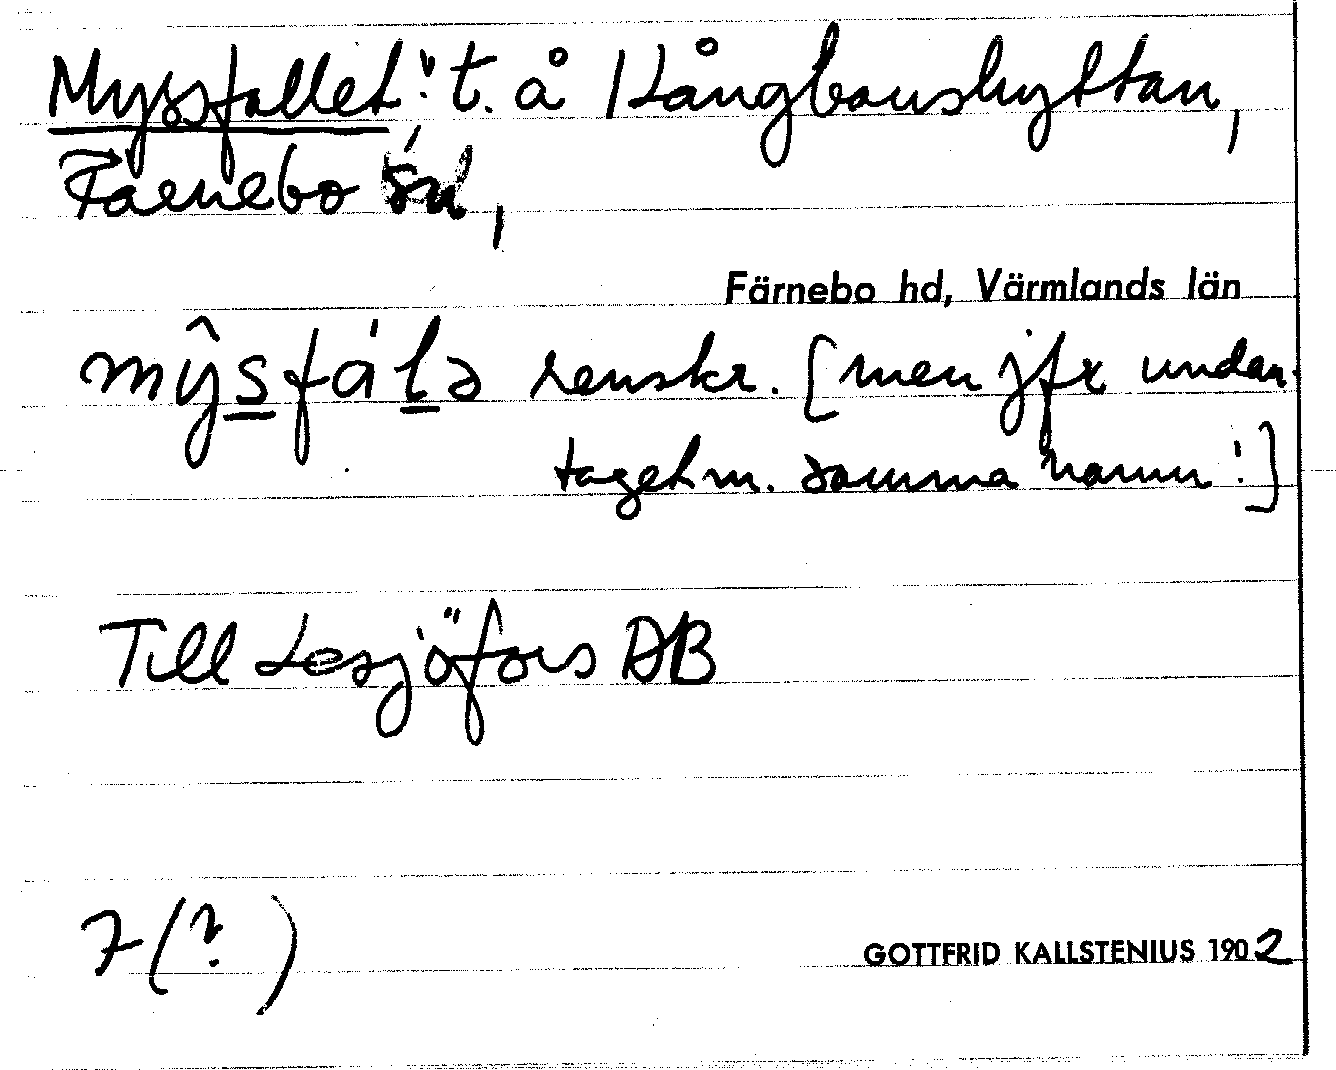 Myssfallet: t. å Långbanshyttan,
Färnebo sn,
Färnebo hd, Värmlands län
mŷsfálə renskr. [men jfr undan-
taget m. samma namn!]
Till Lesjöfors AB
7(?)
GOTTFRID KALLSTENIUS 1902